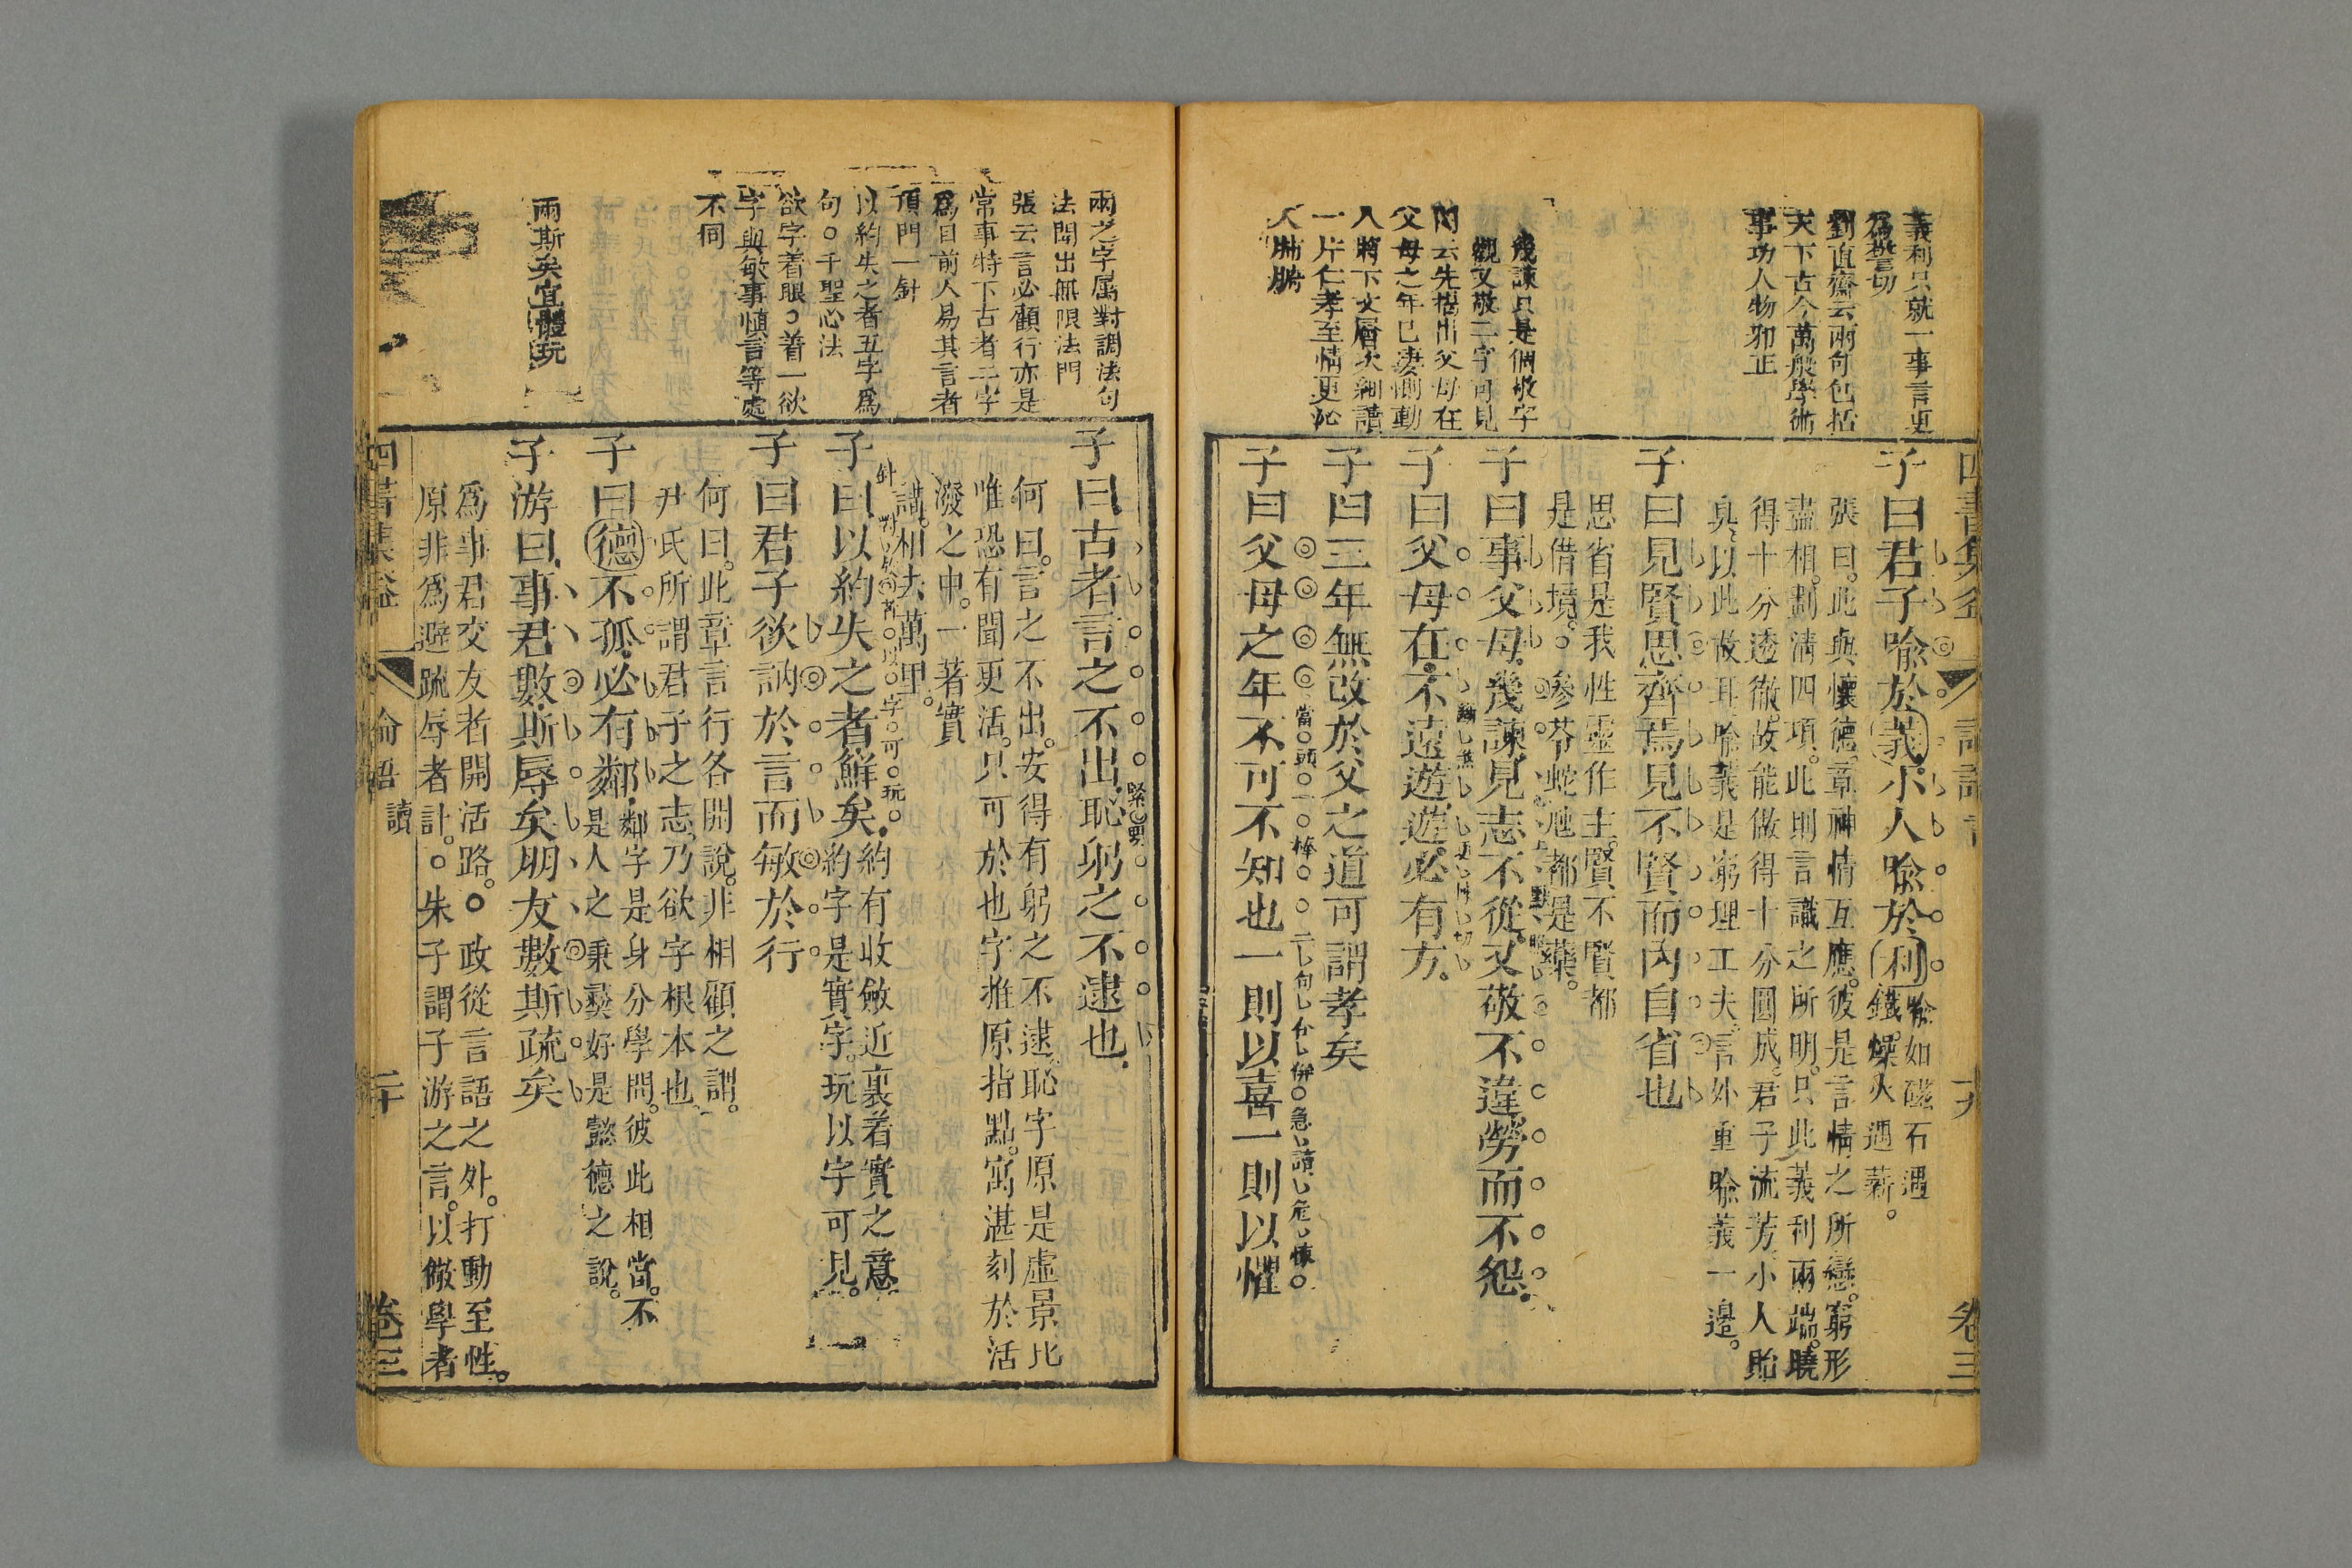 義利只就一事言更
為警切
劉直齋云兩句包括
天下古今萬般學術
事功人物邪正
幾諫只是個敬字
觀又敬二字可見
父母之年已悽惻動
人將下文層次細讀
一片仁孝至情更沁
人肺腑
卷三
子曰君子喻於義小人喻於利
喻如磁石遇
鐵燥火遇薪。
張曰。此與懷德章神情互應。彼是言情之所戀。窮形
盡相。劃清四項。此則言識之所明。只此義利兩端。曉
得十分透徹。故能做得十分圓成。君子流芳小人貽
臭。以此故耳喻義是窮理工夫。言外重喻義一邊。
子曰見賢思齊焉見不賢而內自省也
思省是我性靈作主。賢不賢都
是借境。○參苓蛇虺都是藥。
子曰事父母幾諫見志不從又敬不違勞而不怨
子曰父母在不遠遊遊必有方
子曰三年無改於父之道可謂孝矣
當頭一棒
子曰父母之年不可不知也一則以喜一則以懼
兩之字屬對調法句
法開出無限法門
張云言必顧行亦是
常事特下古者二字
為目前人易其言者
頂門一針
以約失之者五字為
句○千聖心法
欲字着眼○着一欲
字與敏事慎言等處
不同
兩斯矣宜體玩
緊要
子曰古者言之不出恥躬之不逮也
何曰。言之不出。安得有躬之不逮。恥字原是虛景比
唯恐有聞更活。只可於也字推原指點。寓湛刻於活
潑之中。一著實
講。相去萬里。
子曰以約失之者鮮矣
約有收斂近裏着實之意
約字是實字。玩以字可見。
子曰君子欲訥於言而敏於行
何曰。此章言行各開說。非相顧之謂。
尹氏所謂君子之志。乃欲字根本也
子曰德不孤必有鄰
鄰字是身分學問。彼此相當。不
是人之秉彝好是懿德之說。
子游曰事君數斯辱矣朋友數斯疏矣
為事君交友者開活路。○政從言語之外。打動至性。
原非為避疏辱者計。○朱子謂子游之言。以儆學者
論語
讀
二十
卷三